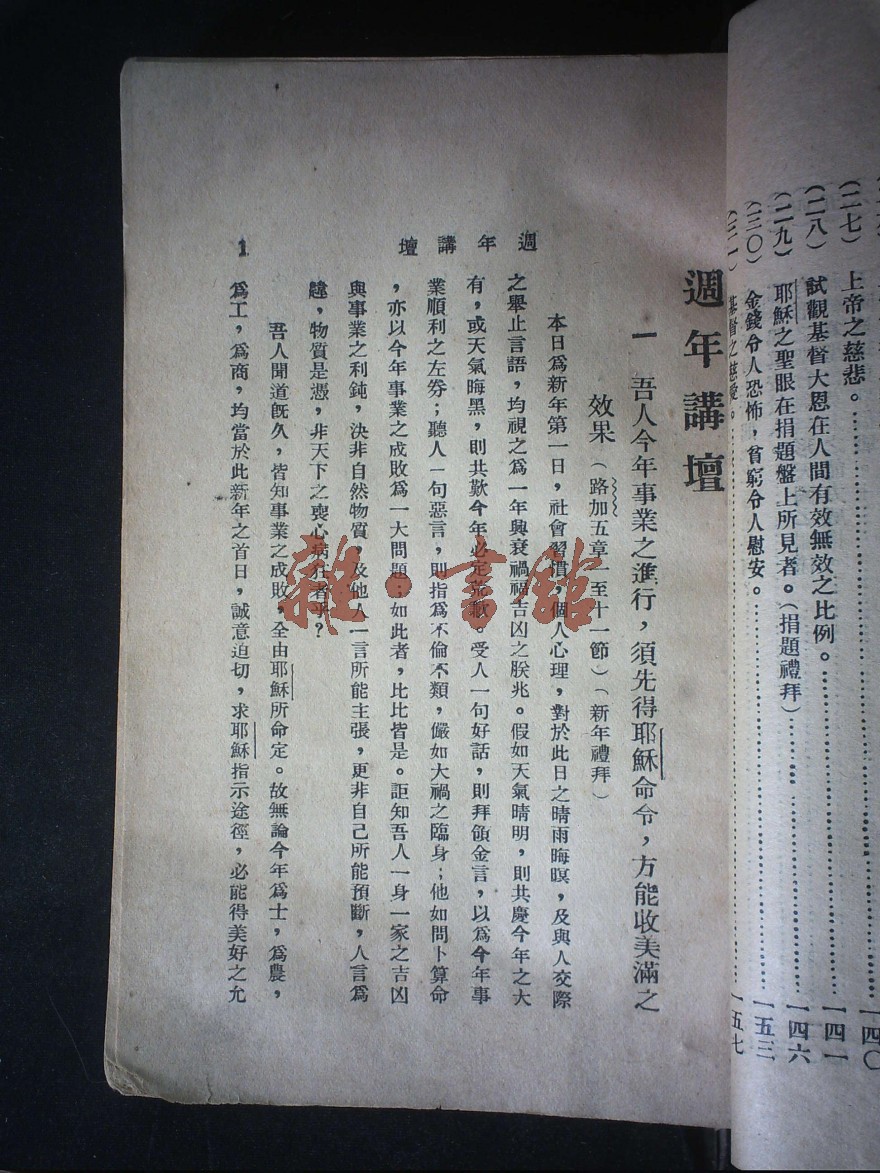 （二七）　上帝之慈悲。……一四〇
（二八）　試觀基督大恩在人間有效無效之比例。……一四一
（二九）　耶穌之聖眼在捐題盤上所見者。（捐題禮拜）……一四六
（三〇）　金錢令人恐怖，貧窮令人慰安。……一五三
（三一）　基督之慈愛。……一五七
週年講壇
一　吾人今年事業之進行，須先得耶穌命令，方能收美滿之
效果（路加五章一至十一節）（新年禮拜）
本日爲新年第一日，社會習慣，個人心理，對於此日之晴雨晦暝，及與人交際
之舉止言語，均視之爲一年興衰禍福吉凶之朕兆。假如天氣晴明，則共慶今年之大
有，或天氣晦黑，則共歎今年必定荒歉。受人一句好話，則拜領金言，以爲今年事
業順利之左劵；聽人一句惡言，則指爲不倫不類，儼如大禍之臨身；他如問卜算命
，亦以今年事業之成敗爲一大問題；如此者，比比皆是。詎知吾人一身一家之吉凶
與事業之利鈍，決非自然物質，及他人一言所能主張，更非自己所能預斷，人言爲
，物質是憑，非天下之喪心病狂者乎？
吾人聞道旣久，皆知事業之成敗，全由耶穌所命定。故無論今年爲士，爲農，
爲工，爲商，均當於此新年之首日，誠意迫切，求耶穌指示途徑，必能得美好之允
週年講壇
1
雜·書館